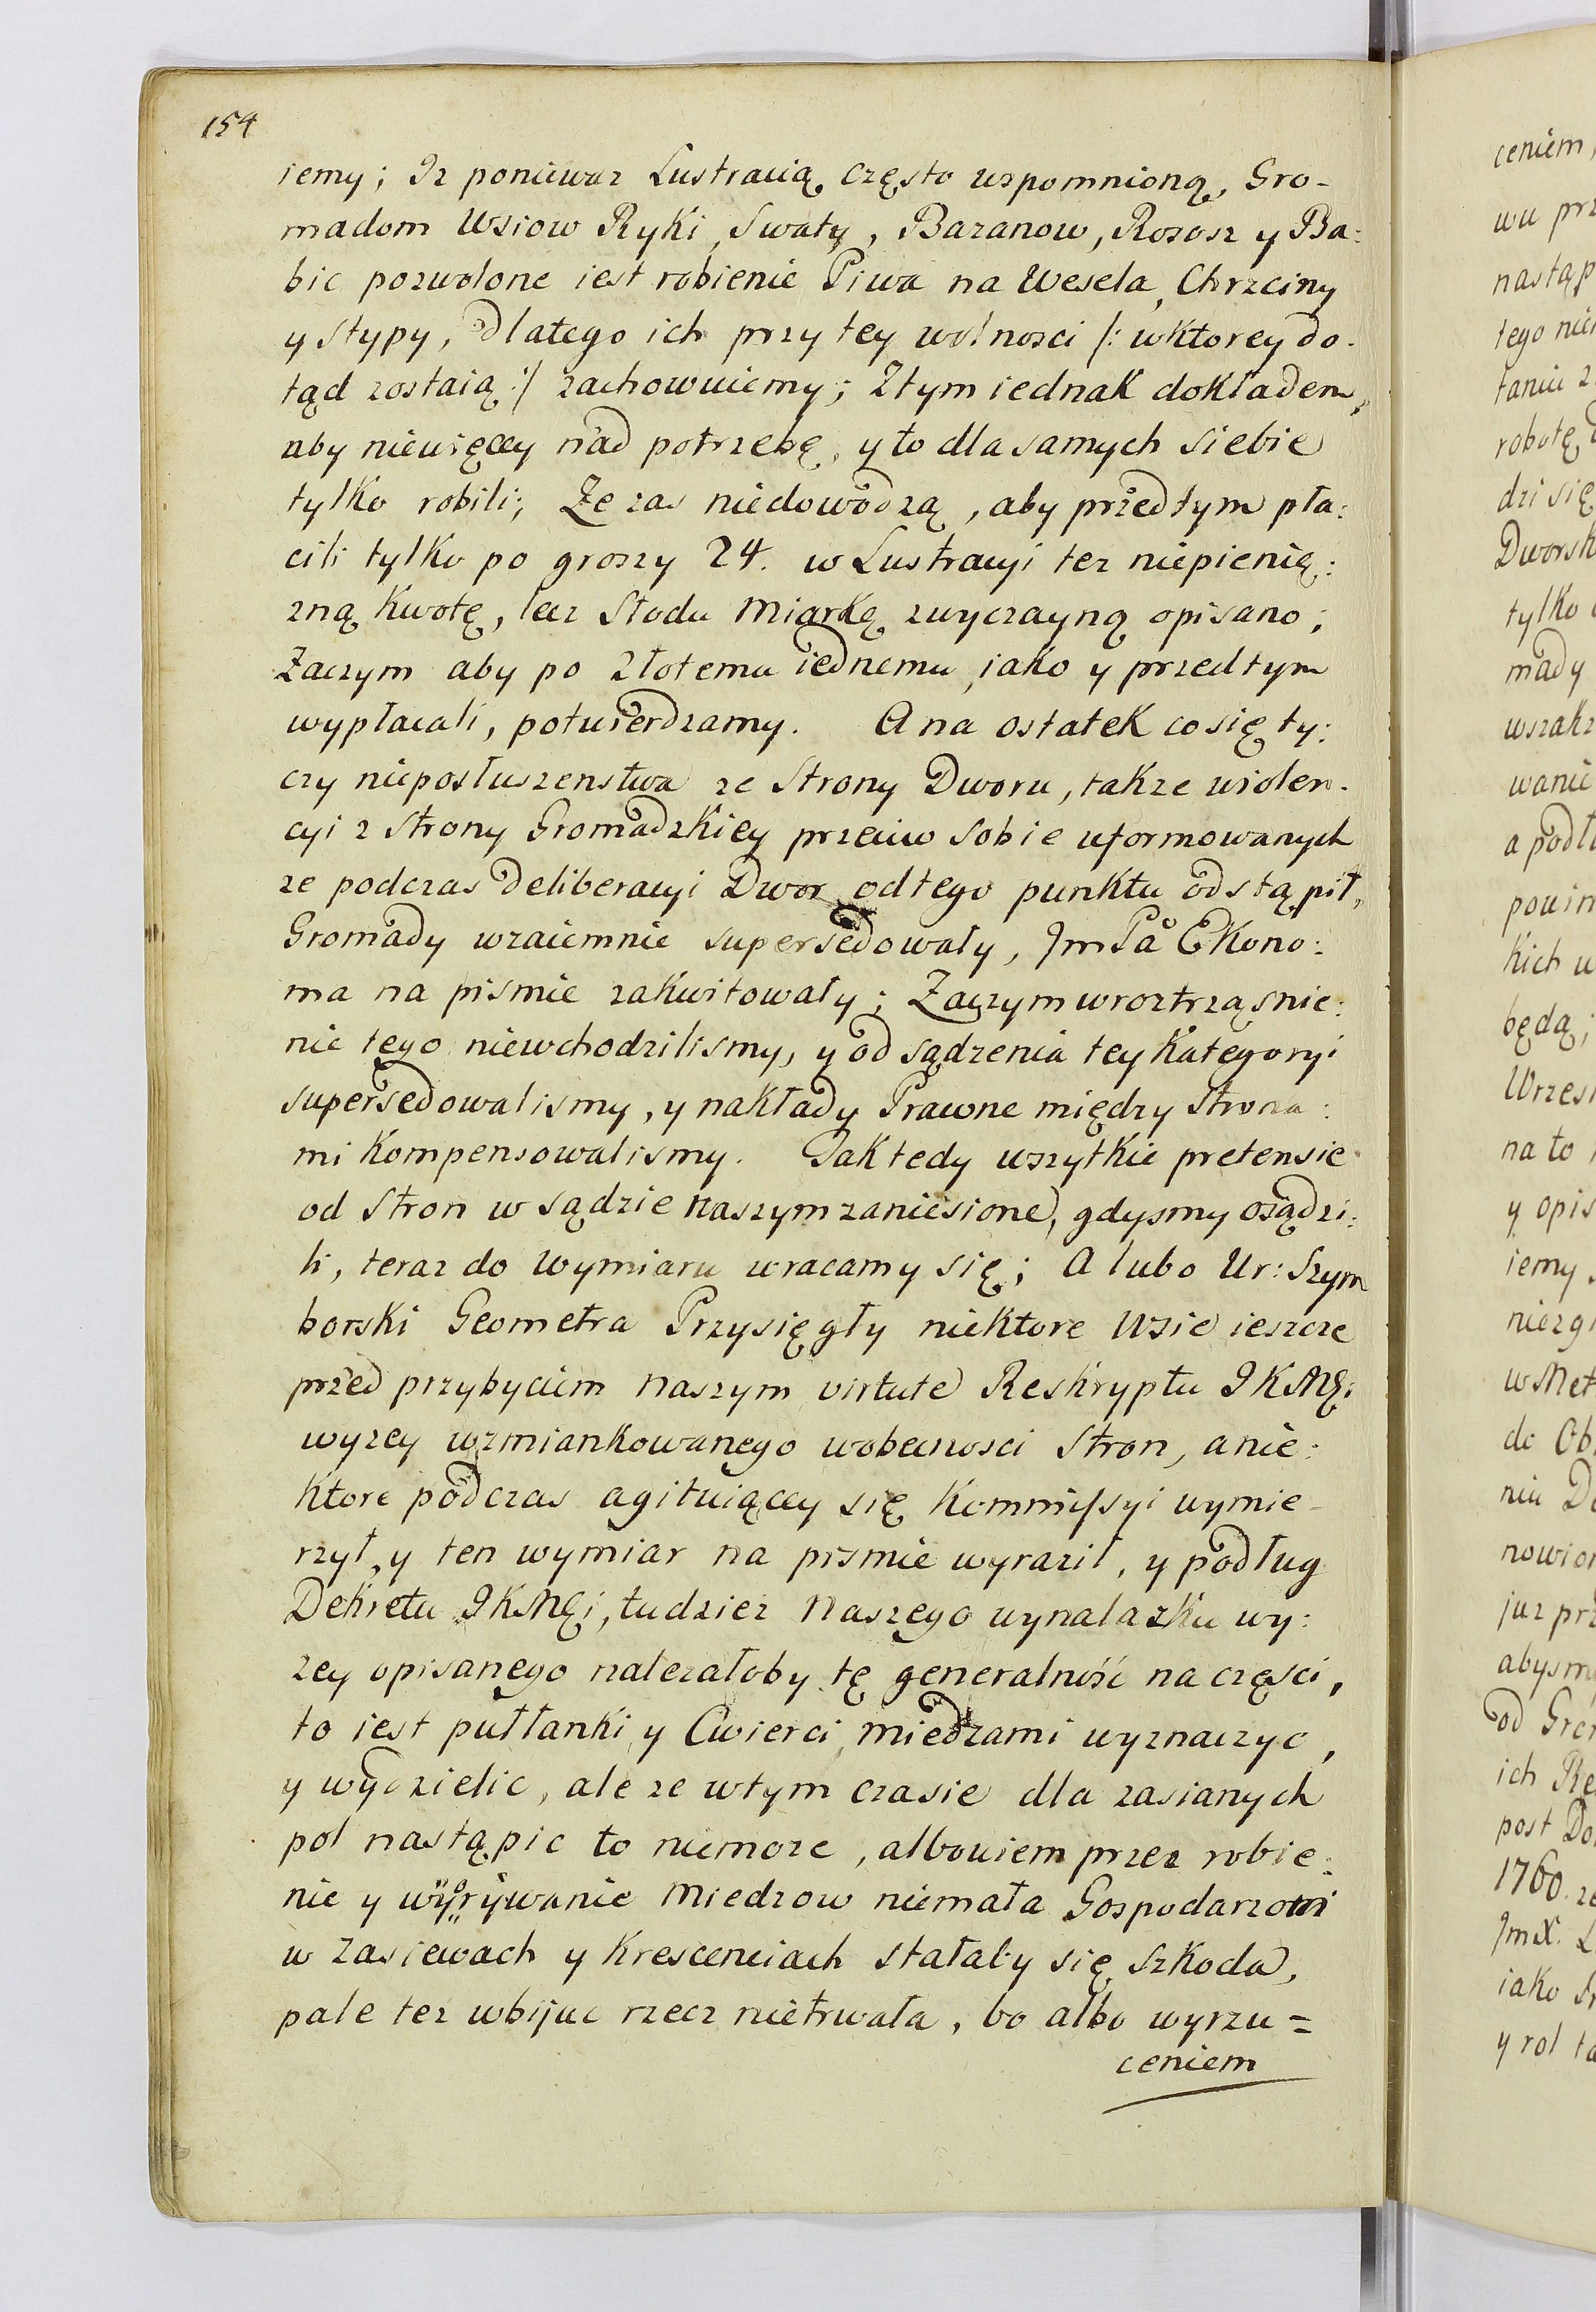 154
iemy; Iz poniewaz Lustracią często wspomnioną, Gro-
madom Wsiow Ryki, Swaty, Baranow, Rososz y Ba:
bic pozwolone iest robienie Piwa na Wesela, Chrzciny
y stypy, dlatego ich przy tey wolnosci /: wktorey do-
tąd zostaią :/ zachowuiemy; Ztym iednak dokładem,
aby niewięcey nad potrzebę, y to dla samych siebie
tylko robili; Ze zas niedowodzą, aby przedtym pła:
cili tylko po groszy 24. w Lustracyi tez niepienię:
zną kwotę, lecz Słodu miarkę zwyczayną opisano;
Zaczym aby po złotemu iednemu, iako y przedtym
wypłacali, potwierdzamy. A na ostatek co się ty:
czy nieposłuszenstwa ze strony Dworu, takze wiolen-
cyi z strony Gromadzkiey przeciw sobie uformowanych
ze podczas deliberacyi Dwor od tego punktu odstąpił,
Gromady wzaiemnie supersedowały, Jm Pa Ekono:
ma na pismie zakwitowały; Zaczym wroztrząsnie:
nie tego niewchodzilismy, y od sądzenia tey kategoryi
supersedowalismy, y nakłady Prawne między strona:
mi kompensowalismy. Tak tedy wszytkie pretensie
od stron w sądzie naszym zaniesione, gdysmy osądzi:
li, teraz do wymiaru wracamy się; A lubo Ur: Szym
borski Geometra Przysięgły niektore Wsie ieszcze
przed przybyciem naszym virtute Reskryptu JKMCi
wyzey wzmiankowanego wobecnosci stron, a nie:
ktore podczas agituiącey się kommissyi wymie-
rzył, y ten wymiar na pismie wyraził, y podług
Dekretu JKMCi, tudziez naszego wynalazku wy:
zey opisanego nalezałoby tę generalność na częsci,
to iest pułłanki, y Cwierci, miedzami wyznaczyc,
y wydzielic, ale ze wtym czasie dla zasianych
pol nastąpic to niemoze, albowiem przez robie:
nie y wyorywanie miedzow niemała Gospodarzom
w zasiewach y krescenciach stałaby się szkoda,
pale tez wbijac rzecz nietrwała, bo albo wyrzu=
ceniem